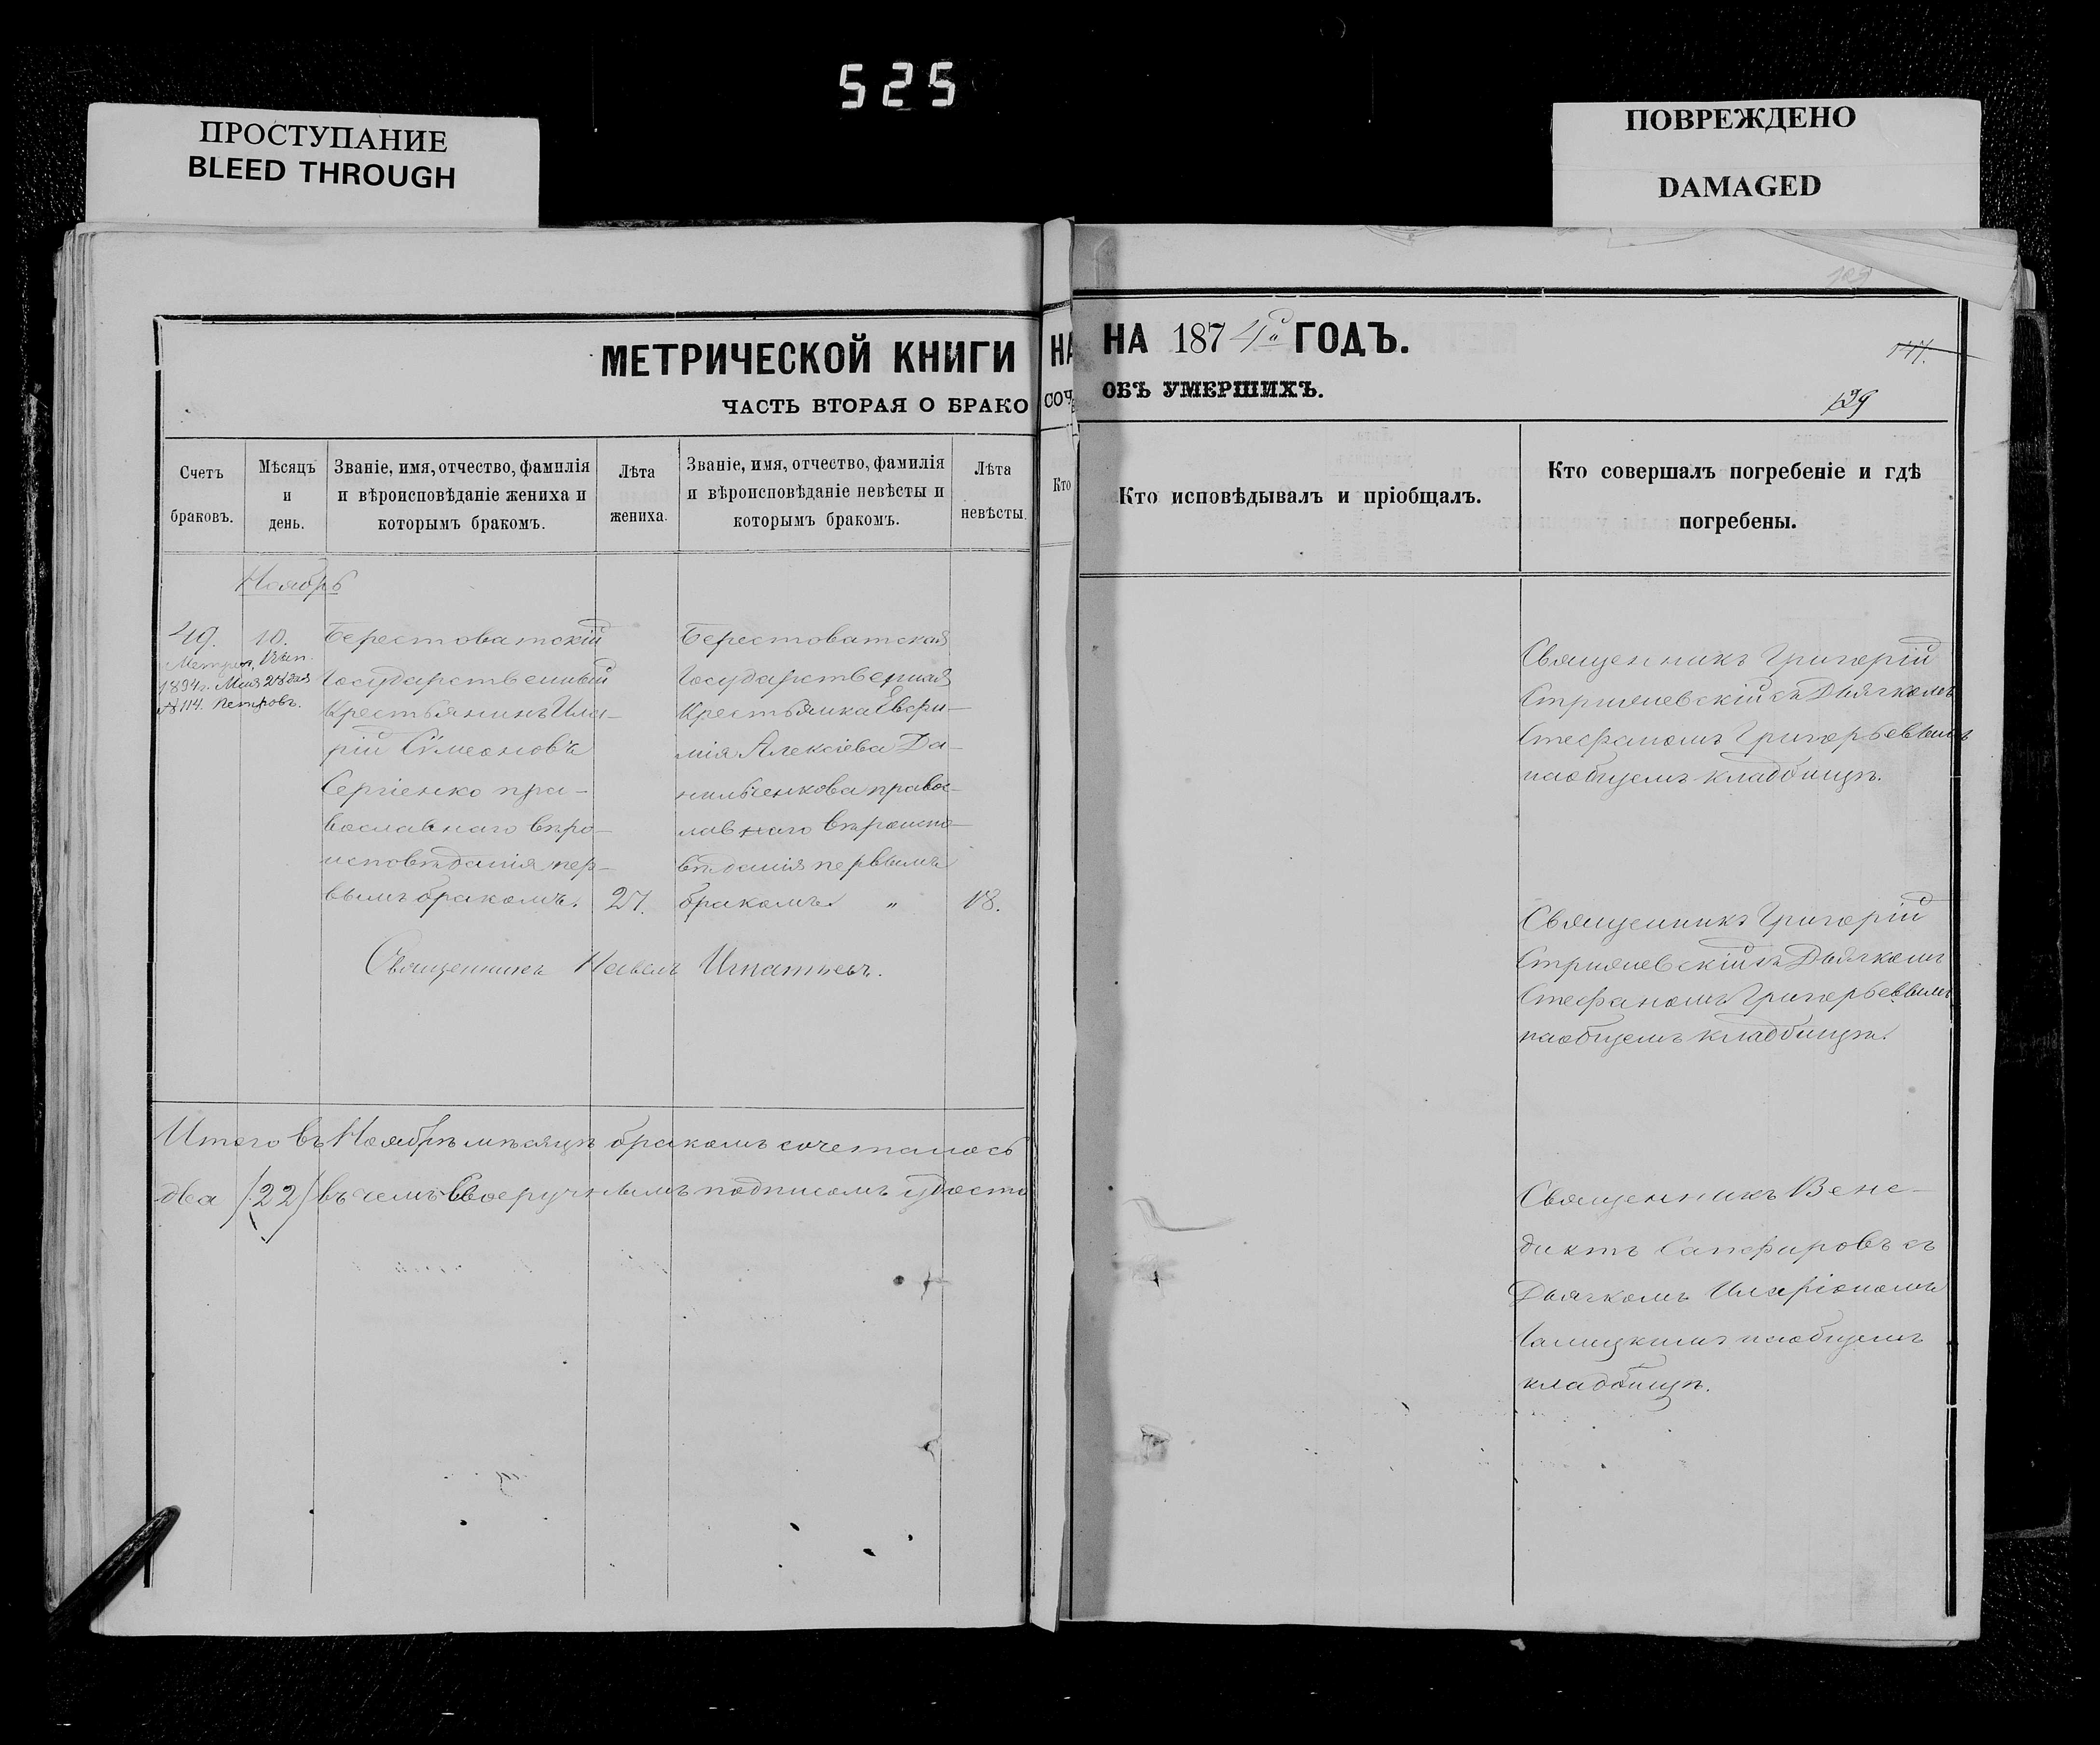 525
ПРОСТУПАНИЕ
BLEED THROUGH
ПОВРЕЖДЕНО
DAMAGED
МЕТРИЧЕСКОЙ КНИГИ
ЧАСТЬ ВТОРАЯ О БРАКО
Счетъ браковъ.
Мѣсяцъ и день.
Званіе, имя, отчество, фамилія
и вѣроисповѣданіе жениха и
которымъ бракомъ.
Лѣта жениха.
Званіе, имя, отчество, фамилія
и вѣроисповѣданіе невѣсты и
которымъ бракомъ.
Лѣта невѣсты.
Ноябрь
49.
10.
1894г. Мая 28 дня
№ 114. Петровъ.
Берестоватскій
Государственный
Крестьянинъ Ила-
рій Сѵмеоновъ
Сергіенко пра-
вославнаго вѣро-
исповѣданія пер-
вымъ бракомъ.
27.
Берестоватская
Государственная
Крестьянка Евфи-
мія Алексіева Да-
нильченкова правос-
лавнаго вѣроиспо-
вѣданія первымъ
бракомъ. "
18.
Священникъ Павелъ Игнатьевъ.
Итого въ Ноябрѣ мѣсяцѣ бракомъ сочеталось
два /22/ въ чемъ своеручнымъ подписомъ удосто
НА
СОЧ
Кто
НА 1874й ГОДЪ.
ОБЪ УМЕРШИХЪ.
117.
139
Кто исповѣдывалъ и пріобщалъ.
Кто совершалъ погребеніе и гдѣ
погребены.
Священникъ Григорій
съ Дьячкомъ
Стефаномъ Григорьевымъ
на общемъ кладбищѣ.
Священникъ Григорій
съ Дьячкомъ
Стефаномъ Григорьевымъ
на общемъ кладбищѣ.
Священникъ Вене-
диктъ Сапфировъ съ
Дьячкомъ Иларіономъ
Галицкимъ на общемъ
кладбищѣ.